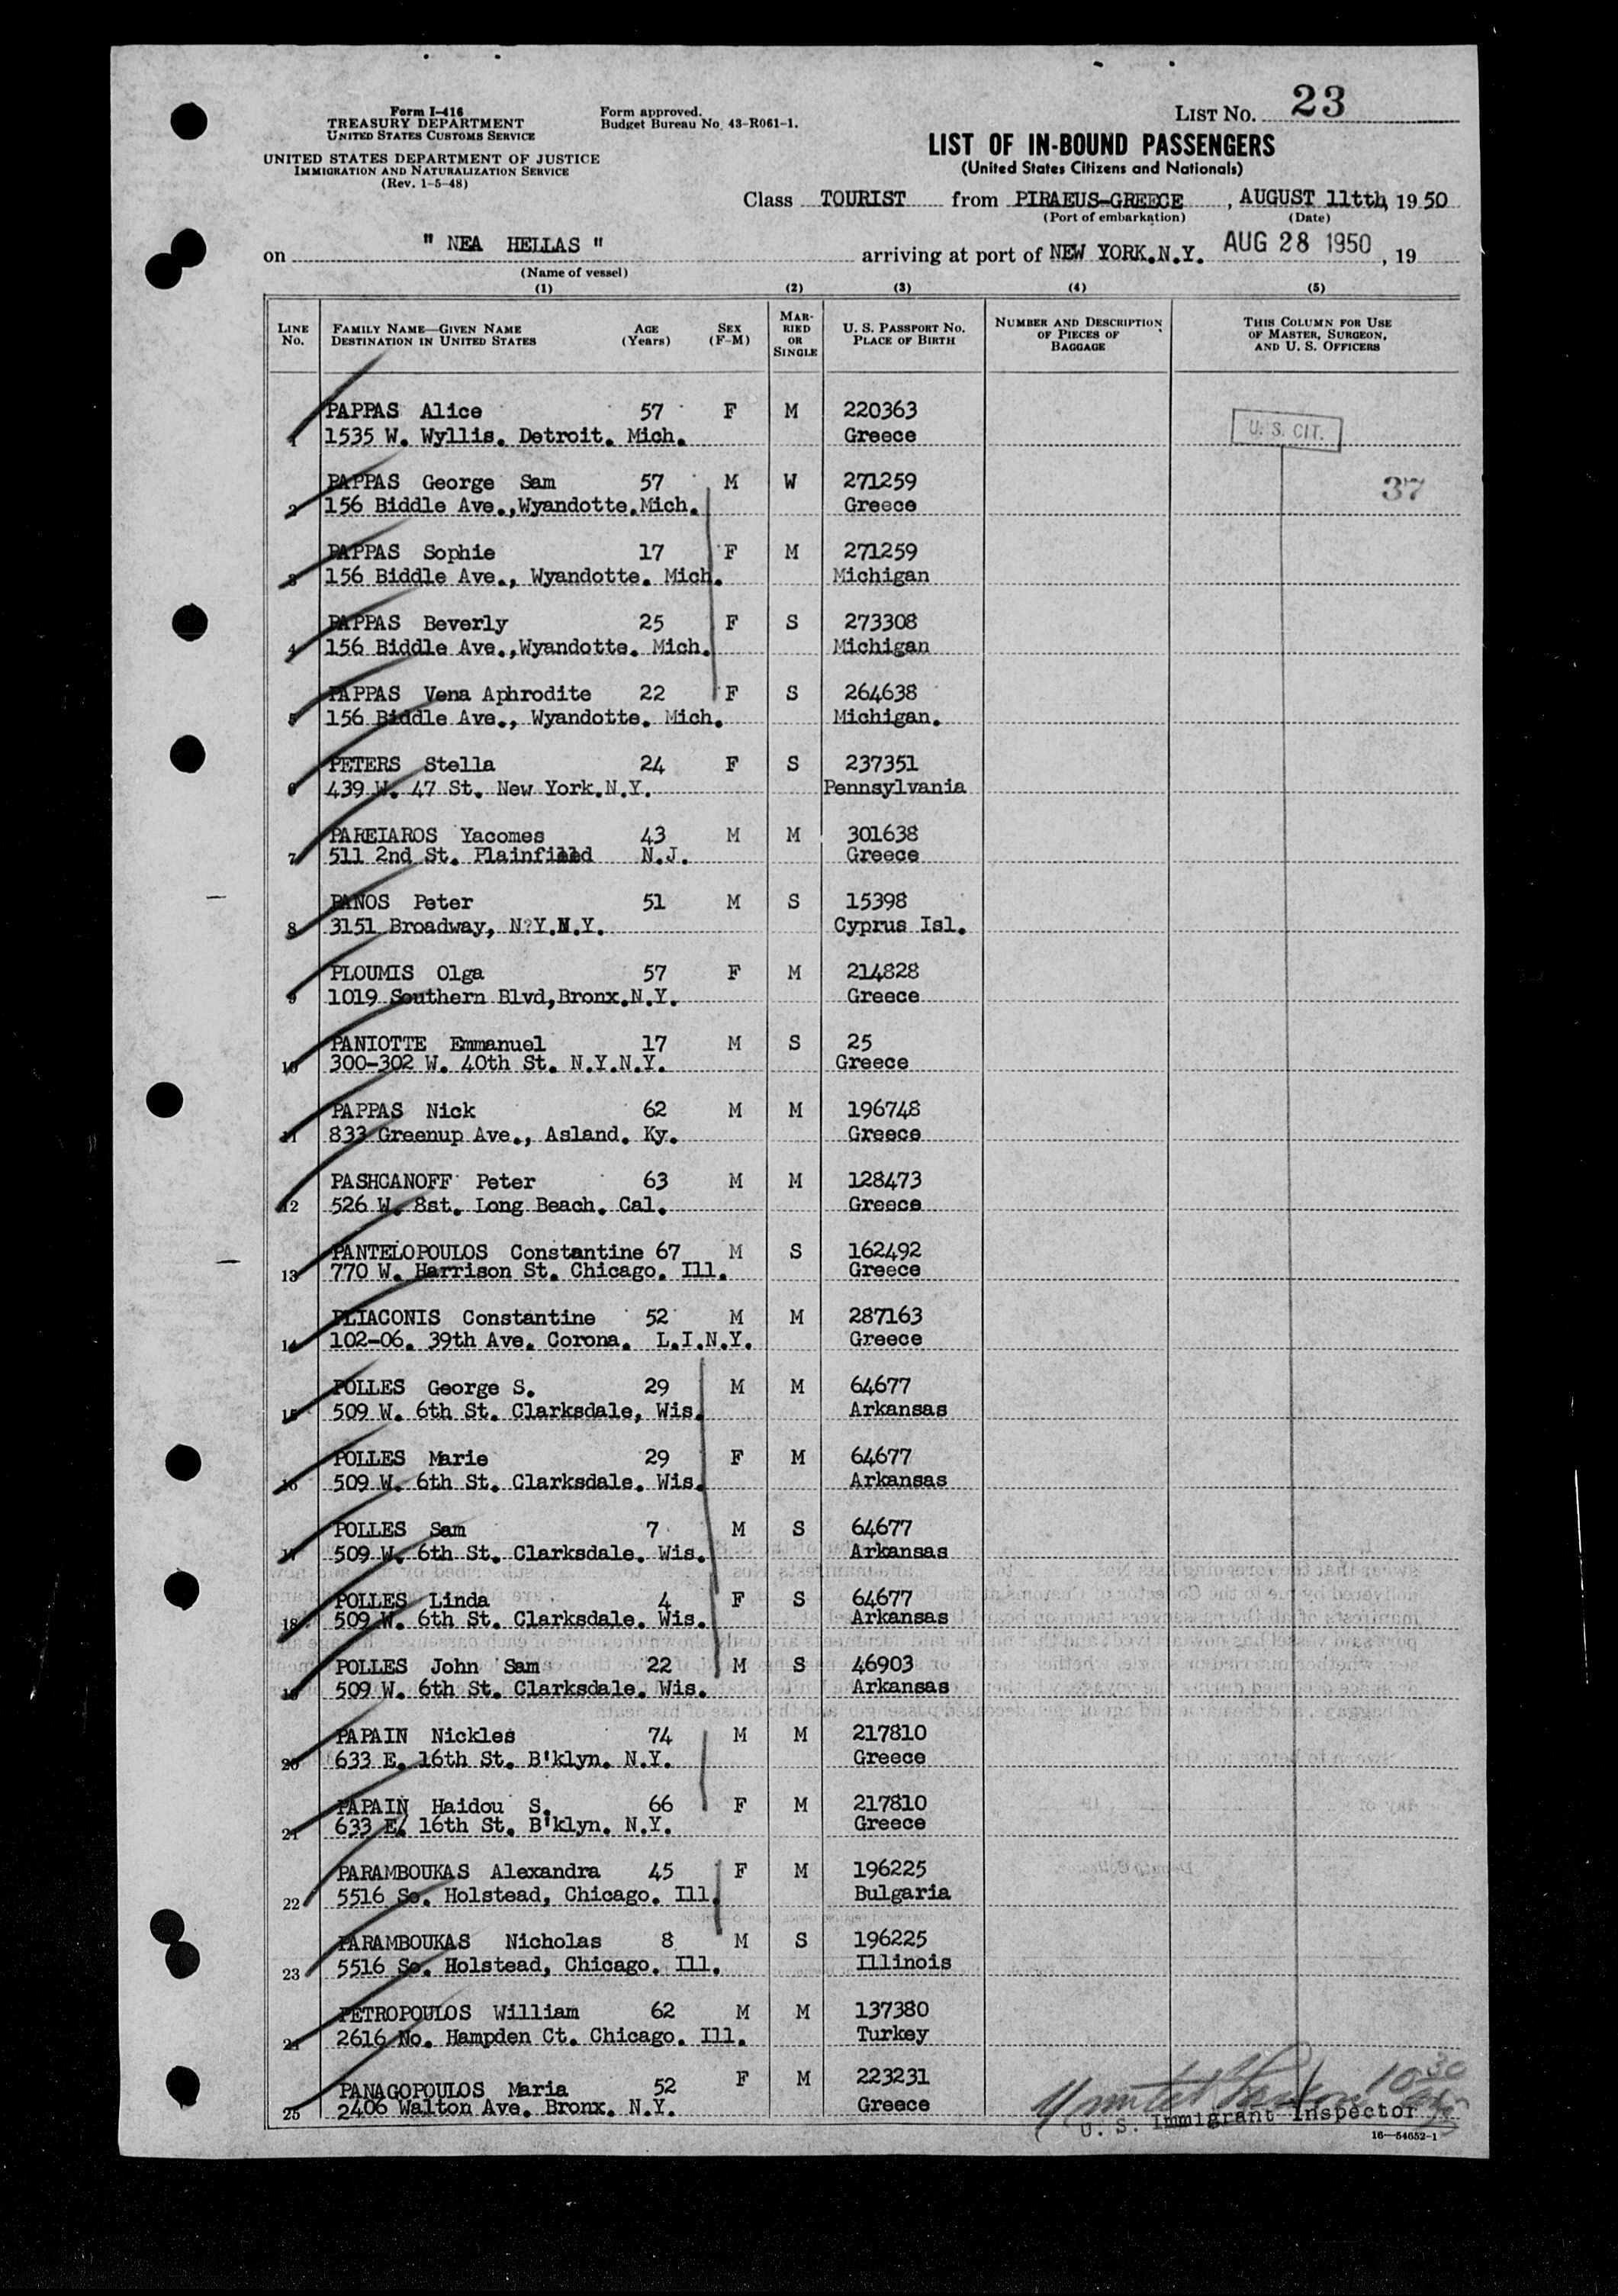 Form I-416
TREASURY DEPARTMENT
UNITED STATES CUSTOMS SERVICE
UNITED STATES DEPARTMENT OF JUSTICE
IMMIGRATION AND NATURALIZATION SERVICE
(Rev. 1-5-48)
Form approved.
Budget Bureau No. 43-R061-1.
LIST NO. 23
LIST OF IN-BOUND PASSENGERS
(United States Citizens and Nationals)
Class TOURIST from PIRAEUS-GREECE, AUGUST 11tth, 1950
(Port of embarkation) (Date)
on " NEA HELLAS " arriving at port of NEW YORK.N.Y. AUG 28 1950, 19
(Name of vessel)
(1) (2) (3) (4) (5)
LINE NO.
FAMILY NAME—GIVEN NAME
DESTINATION IN UNITED STATES
AGE (Years)
SEX (F-M)
MARRIED OR SINGLE
U. S. PASSPORT NO.
PLACE OF BIRTH
NUMBER AND DESCRIPTION OF PIECES OF BAGGAGE
THIS COLUMN FOR USE OF MASTER, SURGEON, AND U. S. OFFICERS
PAPPAS Alice 57 F M 220363
1 1535 W. Wyllis. Detroit. Mich. Greece U. S. CIT.
PAPPAS George Sam 57 M W 271259 37
2 156 Biddle Ave.,Wyandotte.Mich. Greece
PAPPAS Sophie 17 F M 271259
3 156 Biddle Ave., Wyandotte. Mich. Michigan
PAPPAS Beverly 25 F S 273308
4 156 Biddle Ave.,Wyandotte. Mich. Michigan
PAPPAS Vena Aphrodite 22 F S 264638
5 156 Biddle Ave., Wyandotte. Mich. Michigan.
PETERS Stella 24 F S 237351
6 439 W. 47 St. New York.N.Y. Pennsylvania
PAREIAROS Yacomes 43 M M 301638
7 511 2nd St. Plainfield N.J. Greece
PANOS Peter 51 M S 15398
8 3151 Broadway, N?Y.N.Y. Cyprus Isl.
PLOUMIS Olga 57 F M 214828
9 1019 Southern Blvd,Bronx.N.Y. Greece
PANIOTTE Emmanuel 17 M S 25
10 300-302 W. 40th St. N.Y.N.Y. Greece
PAPPAS Nick 62 M M 196748
11 833 Greenup Ave., Asland. Ky. Greece
PASHCANOFF Peter 63 M M 128473
12 526 W. 8st. Long Beach. Cal. Greece
PANTELOPOULOS Constantine 67 M S 162492
13 770 W. Harrison St. Chicago. Ill. Greece
PLIACONIS Constantine 52 M M 287163
14 102-06. 39th Ave. Corona. L.I.N.Y. Greece
POLLES George S. 29 M M 64677
15 509 W. 6th St. Clarksdale, Wis. Arkansas
POLLES Marie 29 F M 64677
16 509 W. 6th St. Clarksdale. Wis. Arkansas
POLLES Sam 7 M S 64677
17 509 W. 6th St. Clarksdale. Wis. Arkansas
POLLES Linda 4 F S 64677
18 509 W. 6th St. Clarksdale. Wis. Arkansas
POLLES John Sam 22 M S 46903
19 509 W. 6th St. Clarksdale. Wis. Arkansas
PAPAIN Nickles 74 M M 217810
20 633 E. 16th St. B'klyn. N.Y. Greece
PAPAIN Haidou S. 66 F M 217810
21 633 E. 16th St. B'klyn. N.Y. Greece
PARAMBOUKAS Alexandra 45 F M 196225
22 5516 So. Holstead, Chicago. Ill. Bulgaria
PARAMBOUKAS Nicholas 8 M S 196225
23 5516 So. Holstead, Chicago. Ill. Illinois
PETROPOULOS William 62 M M 137380
24 2616 No. Hampden Ct. Chicago. Ill. Turkey
PANAGOPOULOS Maria 52 F M 223231
25 2406 Walton Ave. Bronx. N.Y. Greece
10 30
U. S. Immigrant Inspector
16—54652-1